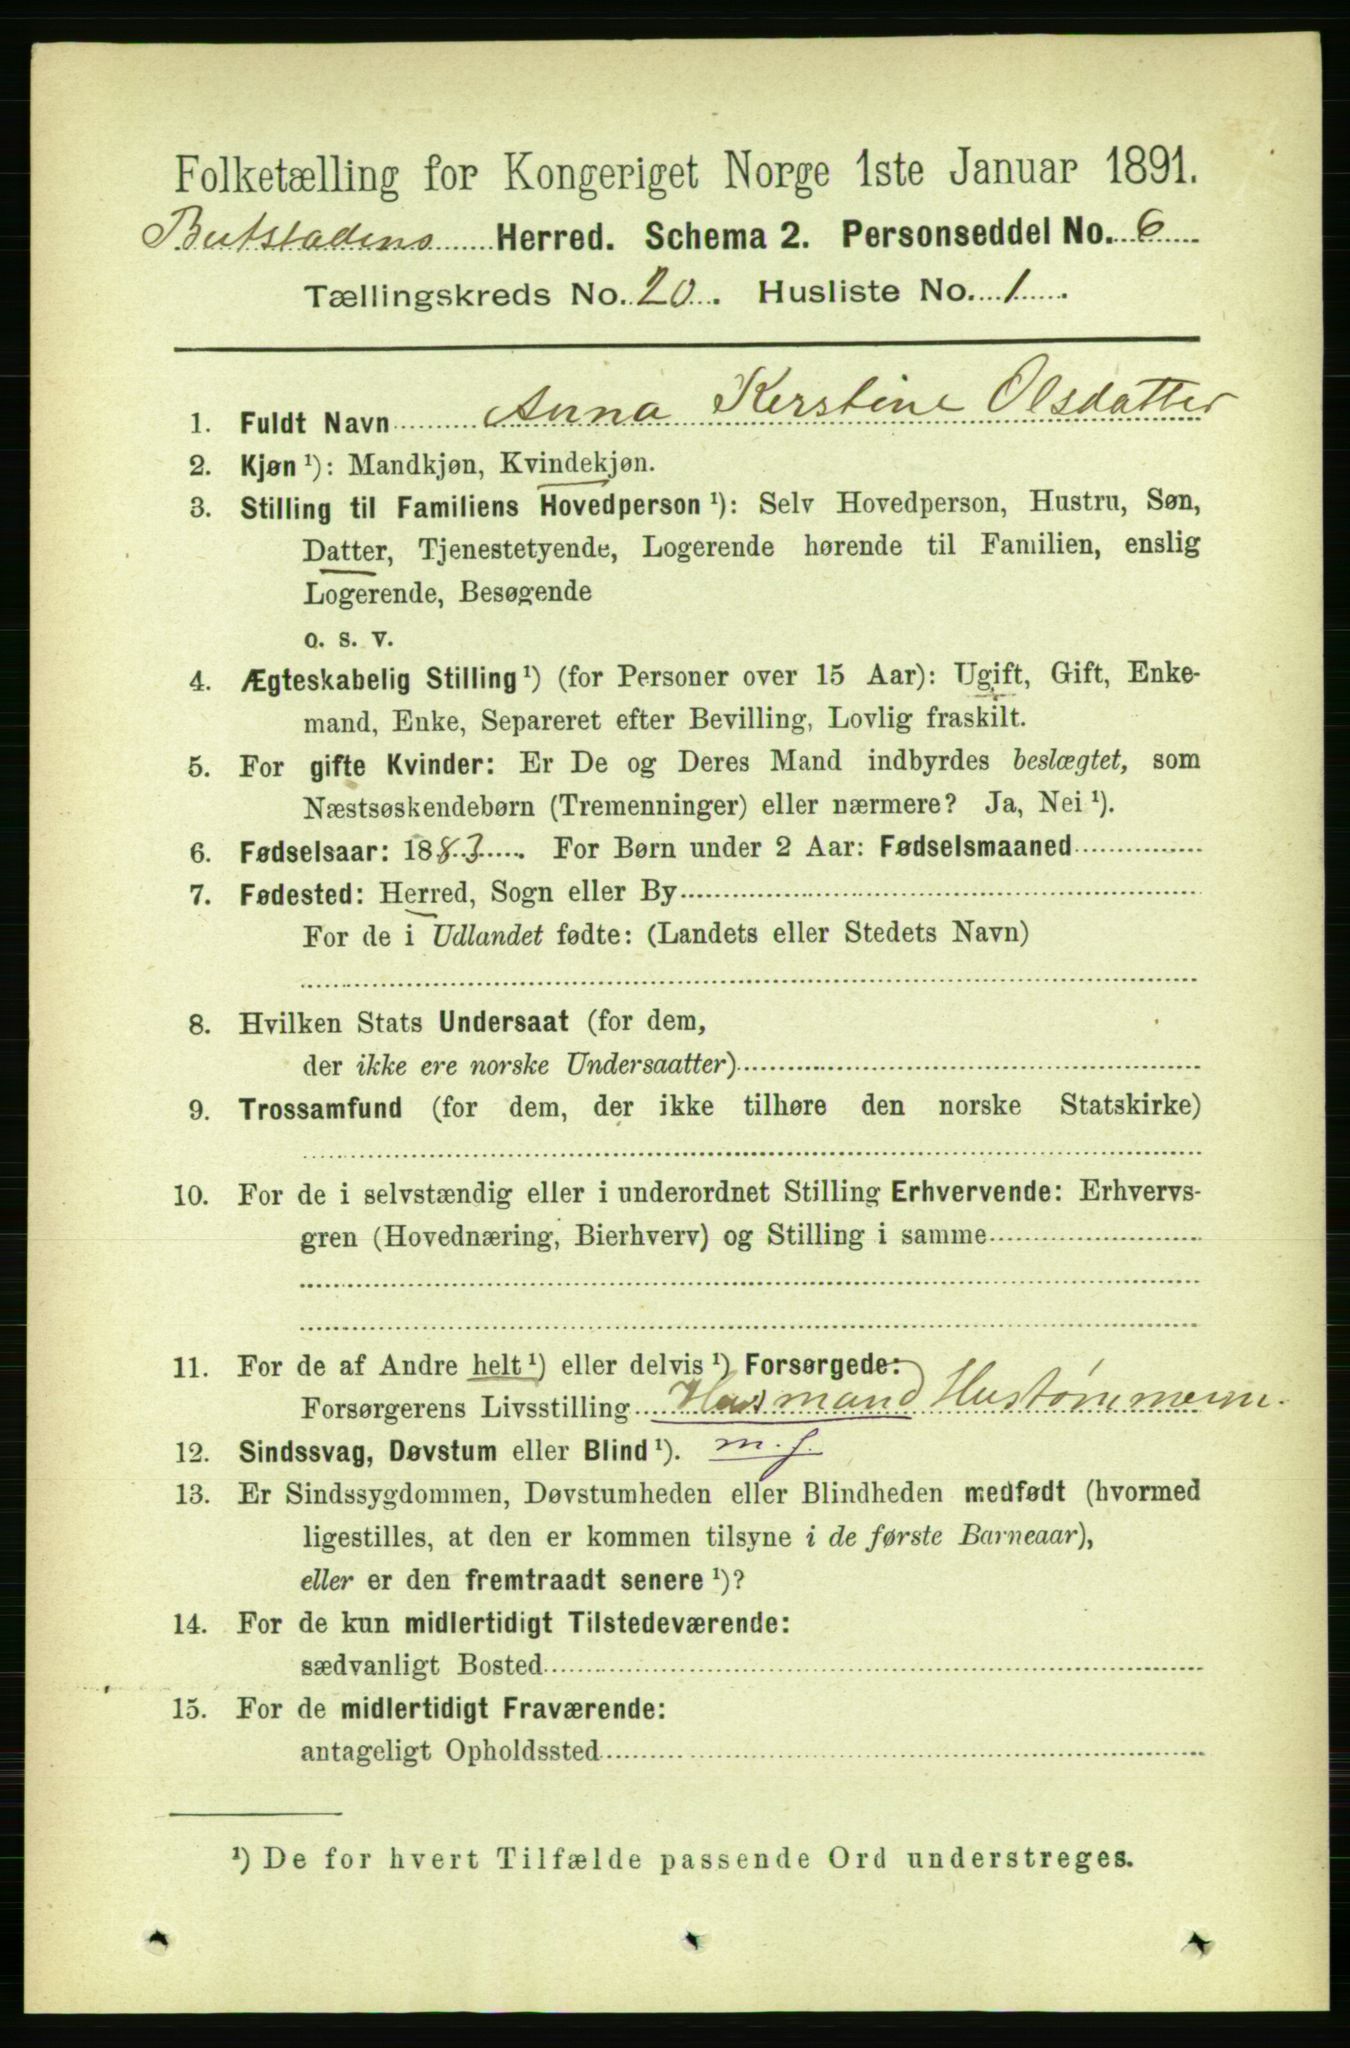 Folketælling for Kongeriget Norge 1ste Januar 1891.
Beitstadens Herred. Schema 2. Personseddel No. 6
Tællingskreds No. 20. Husliste No. 1
1. Fuldt Navn Anna Kerstine Olsdatter
2. Kjøn ¹): Mandkjøn, Kvindekjøn.
3. Stilling til Familiens Hovedperson ¹): Selv Hovedperson, Hustru, Søn,
Datter, Tjenestetyende, Logerende hørende til Familien, enslig
Logerende, Besøgende
o. s. v.
4. Ægteskabelig Stilling ¹) (for Personer over 15 Aar): Ugift, Gift, Enke-
mand, Enke, Separeret efter Bevilling, Lovlig fraskilt.
5. For gifte Kvinder: Er De og Deres Mand indbyrdes beslægtet, som
Næstsøskendebørn (Tremenninger) eller nærmere? Ja, Nei ¹).
6. Fødselsaar: 1883. For Børn under 2 Aar: Fødselsmaaned
7. Fødested: Herred, Sogn eller By
For de i Udlandet fødte: (Landets eller Stedets Navn)
8. Hvilken Stats Undersaat (for dem,
der ikke ere norske Undersaatter)
9. Trossamfund (for dem, der ikke tilhøre den norske Statskirke)
10. For de i selvstændig eller i underordnet Stilling Erhvervende: Erhvervs-
gren (Hovednæring, Bierhverv) og Stilling i samme
11. For de af Andre helt ¹) eller delvis ¹) Forsørgede:
Forsørgerens Livsstilling Husmand Hustømmerm.
12. Sindssvag, Døvstum eller Blind ¹). m. j.
13. Er Sindssygdommen, Døvstumheden eller Blindheden medfødt (hvormed
ligestilles, at den er kommen tilsyne i de første Barneaar),
eller er den fremtraadt senere ¹)?
14. For de kun midlertidigt Tilstedeværende:
sædvanligt Bosted
15. For de midlertidigt Fraværende:
antageligt Opholdssted
¹) De for hvert Tilfælde passende Ord understreges.